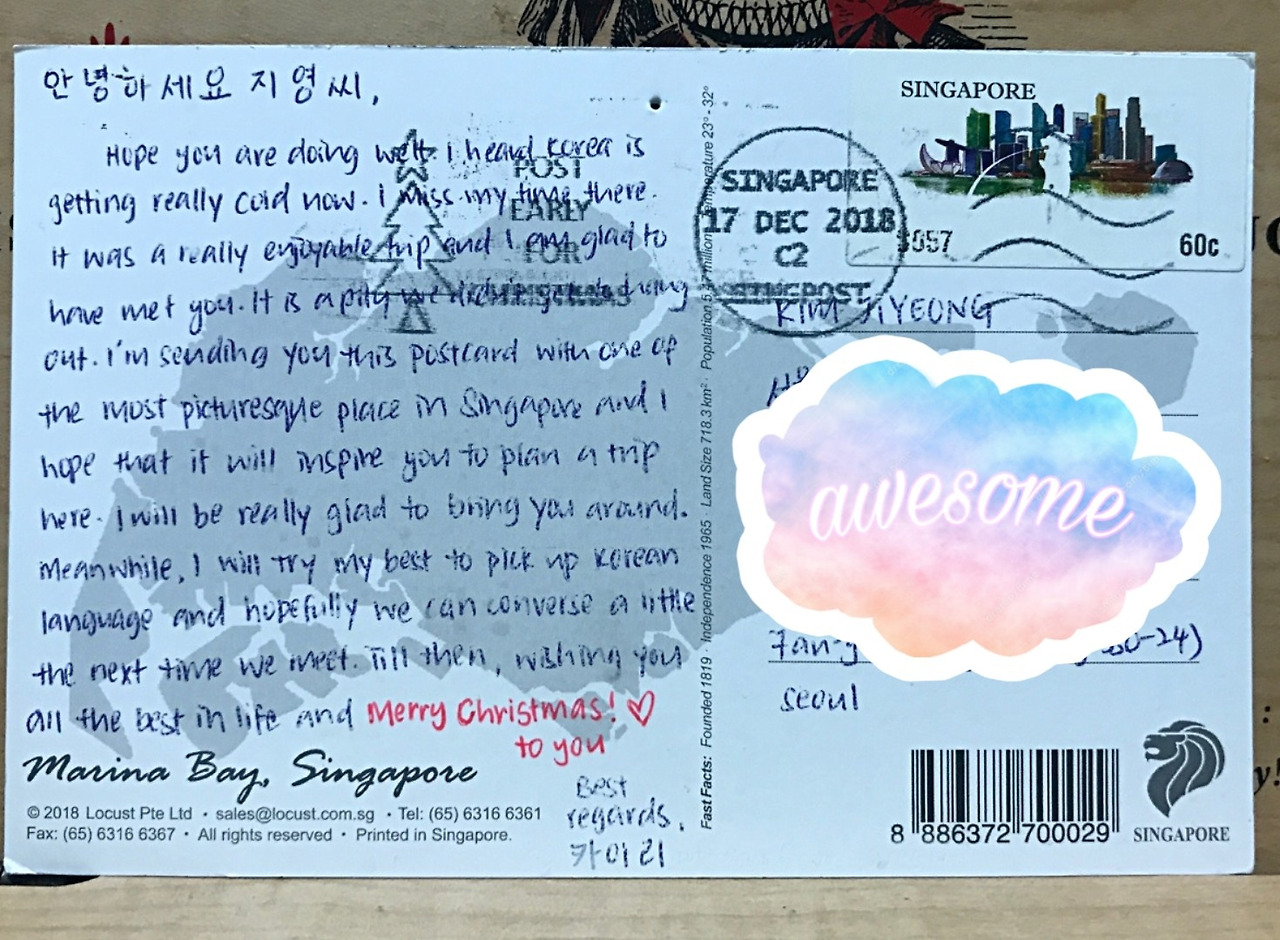 안녕하세요 지영씨,
Hope you are doing well. I heard Korea is
getting really cold now. I miss my time there.
it was a really enjoyable trip and I am glad to
have met you. It is a pity we didn't get to hang
out. I'm sending you this postcard with one of
the most picturesque place in Singapore and I
hope that it will inspire you to plan a trip
here. I will be really glad to bring you around.
Meanwhile, I will try my best to pick up Korean
language and hopefully we can converse a little
the next time we meet. Till then, wishing you
all the best in life and Merry Christmas! ♡
to you
Best
regards,
카이리
Marina Bay, Singapore
© 2018 Locust Pte Ltd • sales@locust.com.sg • Tel: (65) 6316 6361
Fax: (65) 6316 6367 • All rights reserved • Printed in Singapore.
POST
EARLY
FOR
CHRISTMAS
Fast Facts: Founded 1819 · Independence 1965 · Land Size 718.3 km² · Population million Temperature 23° - 32°
SINGAPORE
17 DEC 2018
C2
SINGPOST
SINGAPORE
60c
KIM JIYEONG
awesome
seoul
8 886372 700029
SINGAPORE